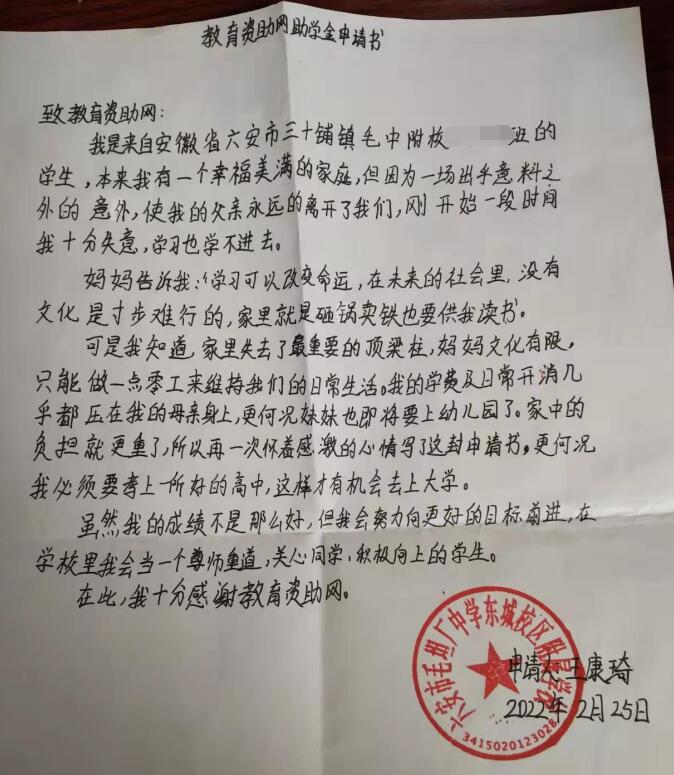 教育资助网助学金申请书
致教育资助网：
我是来自安徽省六安市三十铺镇毛中附校班的
学生，本来我有一个幸福美满的家庭，但因为一场出乎意料之
外的意外，使我的父亲永远的离开了我们，刚开始一段时间
我十分失意，学习也学不进去。
妈妈告诉我：“学习可以改变命远，在未来的社会里，没有
文化是寸步难行的，家里就是砸锅卖铁也要供我读书。
可是我知道，家里失去了最重要的顶梁柱，妈妈文化有限，
只能做一点零工来维持我们的日常生活。我的学费及日常开消几
乎都压在我的母亲身上，更何况妹妹也即将要上幼儿园了。家中的
负担就更重了，所以再一次怀着感激的心情写了这封申请书。更何况
我必须要考上一所好的高中，这样才有机会去上大学。
虽然我的成绩不是那么好，但我会努力向更好的目标前进，在
学校里我会当一个尊师重道，关心同学，积极向上的学生。
在此，我十分感谢教育资助网。
六安市毛坦厂中学东城校区附属学校
申请人王康琦
2022年2月25日
3415020123028